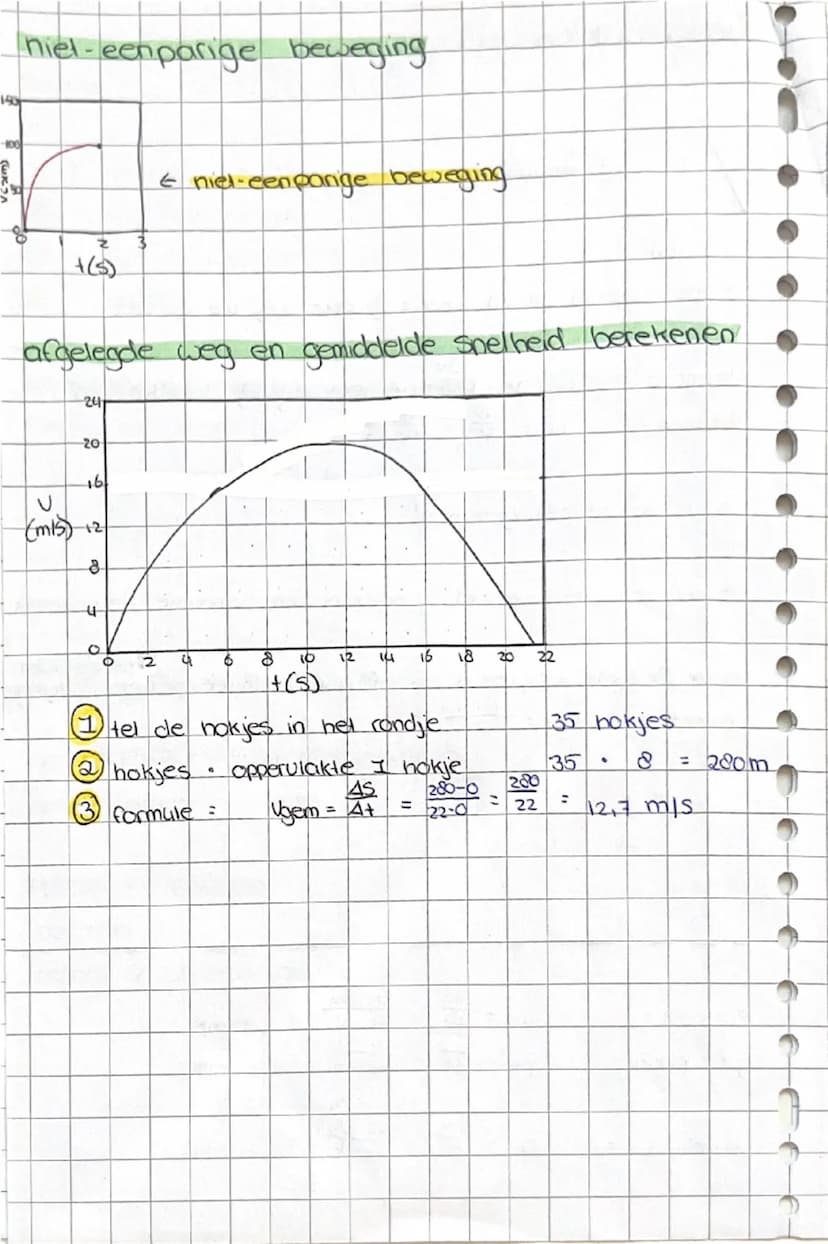 niet-eenparige beweging
150
100
50
0
0 1 2 3
t(s)
← niet-eenparige beweging
afgelegde weg en gemiddelde snelheid berekenen
24
20
16
v
(m/s) 12
8
4
0
0 2 4 6 8 10 12 14 16 18 20 22
t(s)
1 tel de hokjes in het rondje 35 hokjes
2 hokjes · oppervlakte 1 hokje 35 · 8 = 280m
3 formule : Vgem = ΔS/Δt = 280-0/22-0 = 280/22 = 12,7 m/s